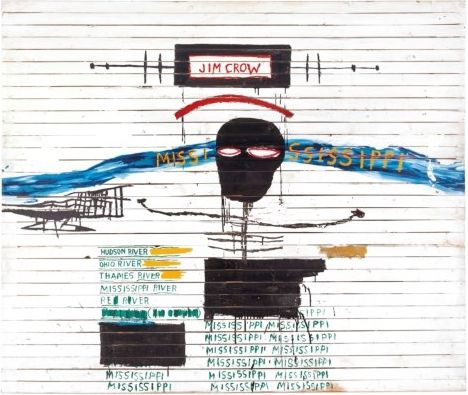 JIM CROW
MISSI SSISSIPPI
HUDSON RIVER
OHIO RIVER
THAMES RIVER
MISSISSIPPI RIVER
RIVER
IPPI
MISSISSIPPI MISSISSIPPI
MISSISSIPPI MISSISSIPPI
MISSISSIPPI MISSISSIPPI
MISSISSIPPI MISSISSIPPI MISSISSIPPI
MISSISSIPPI MISSISSIPPI MISSISSIPPI
MISSISSIPPI MISSISSIPPI MISSISSIPPI